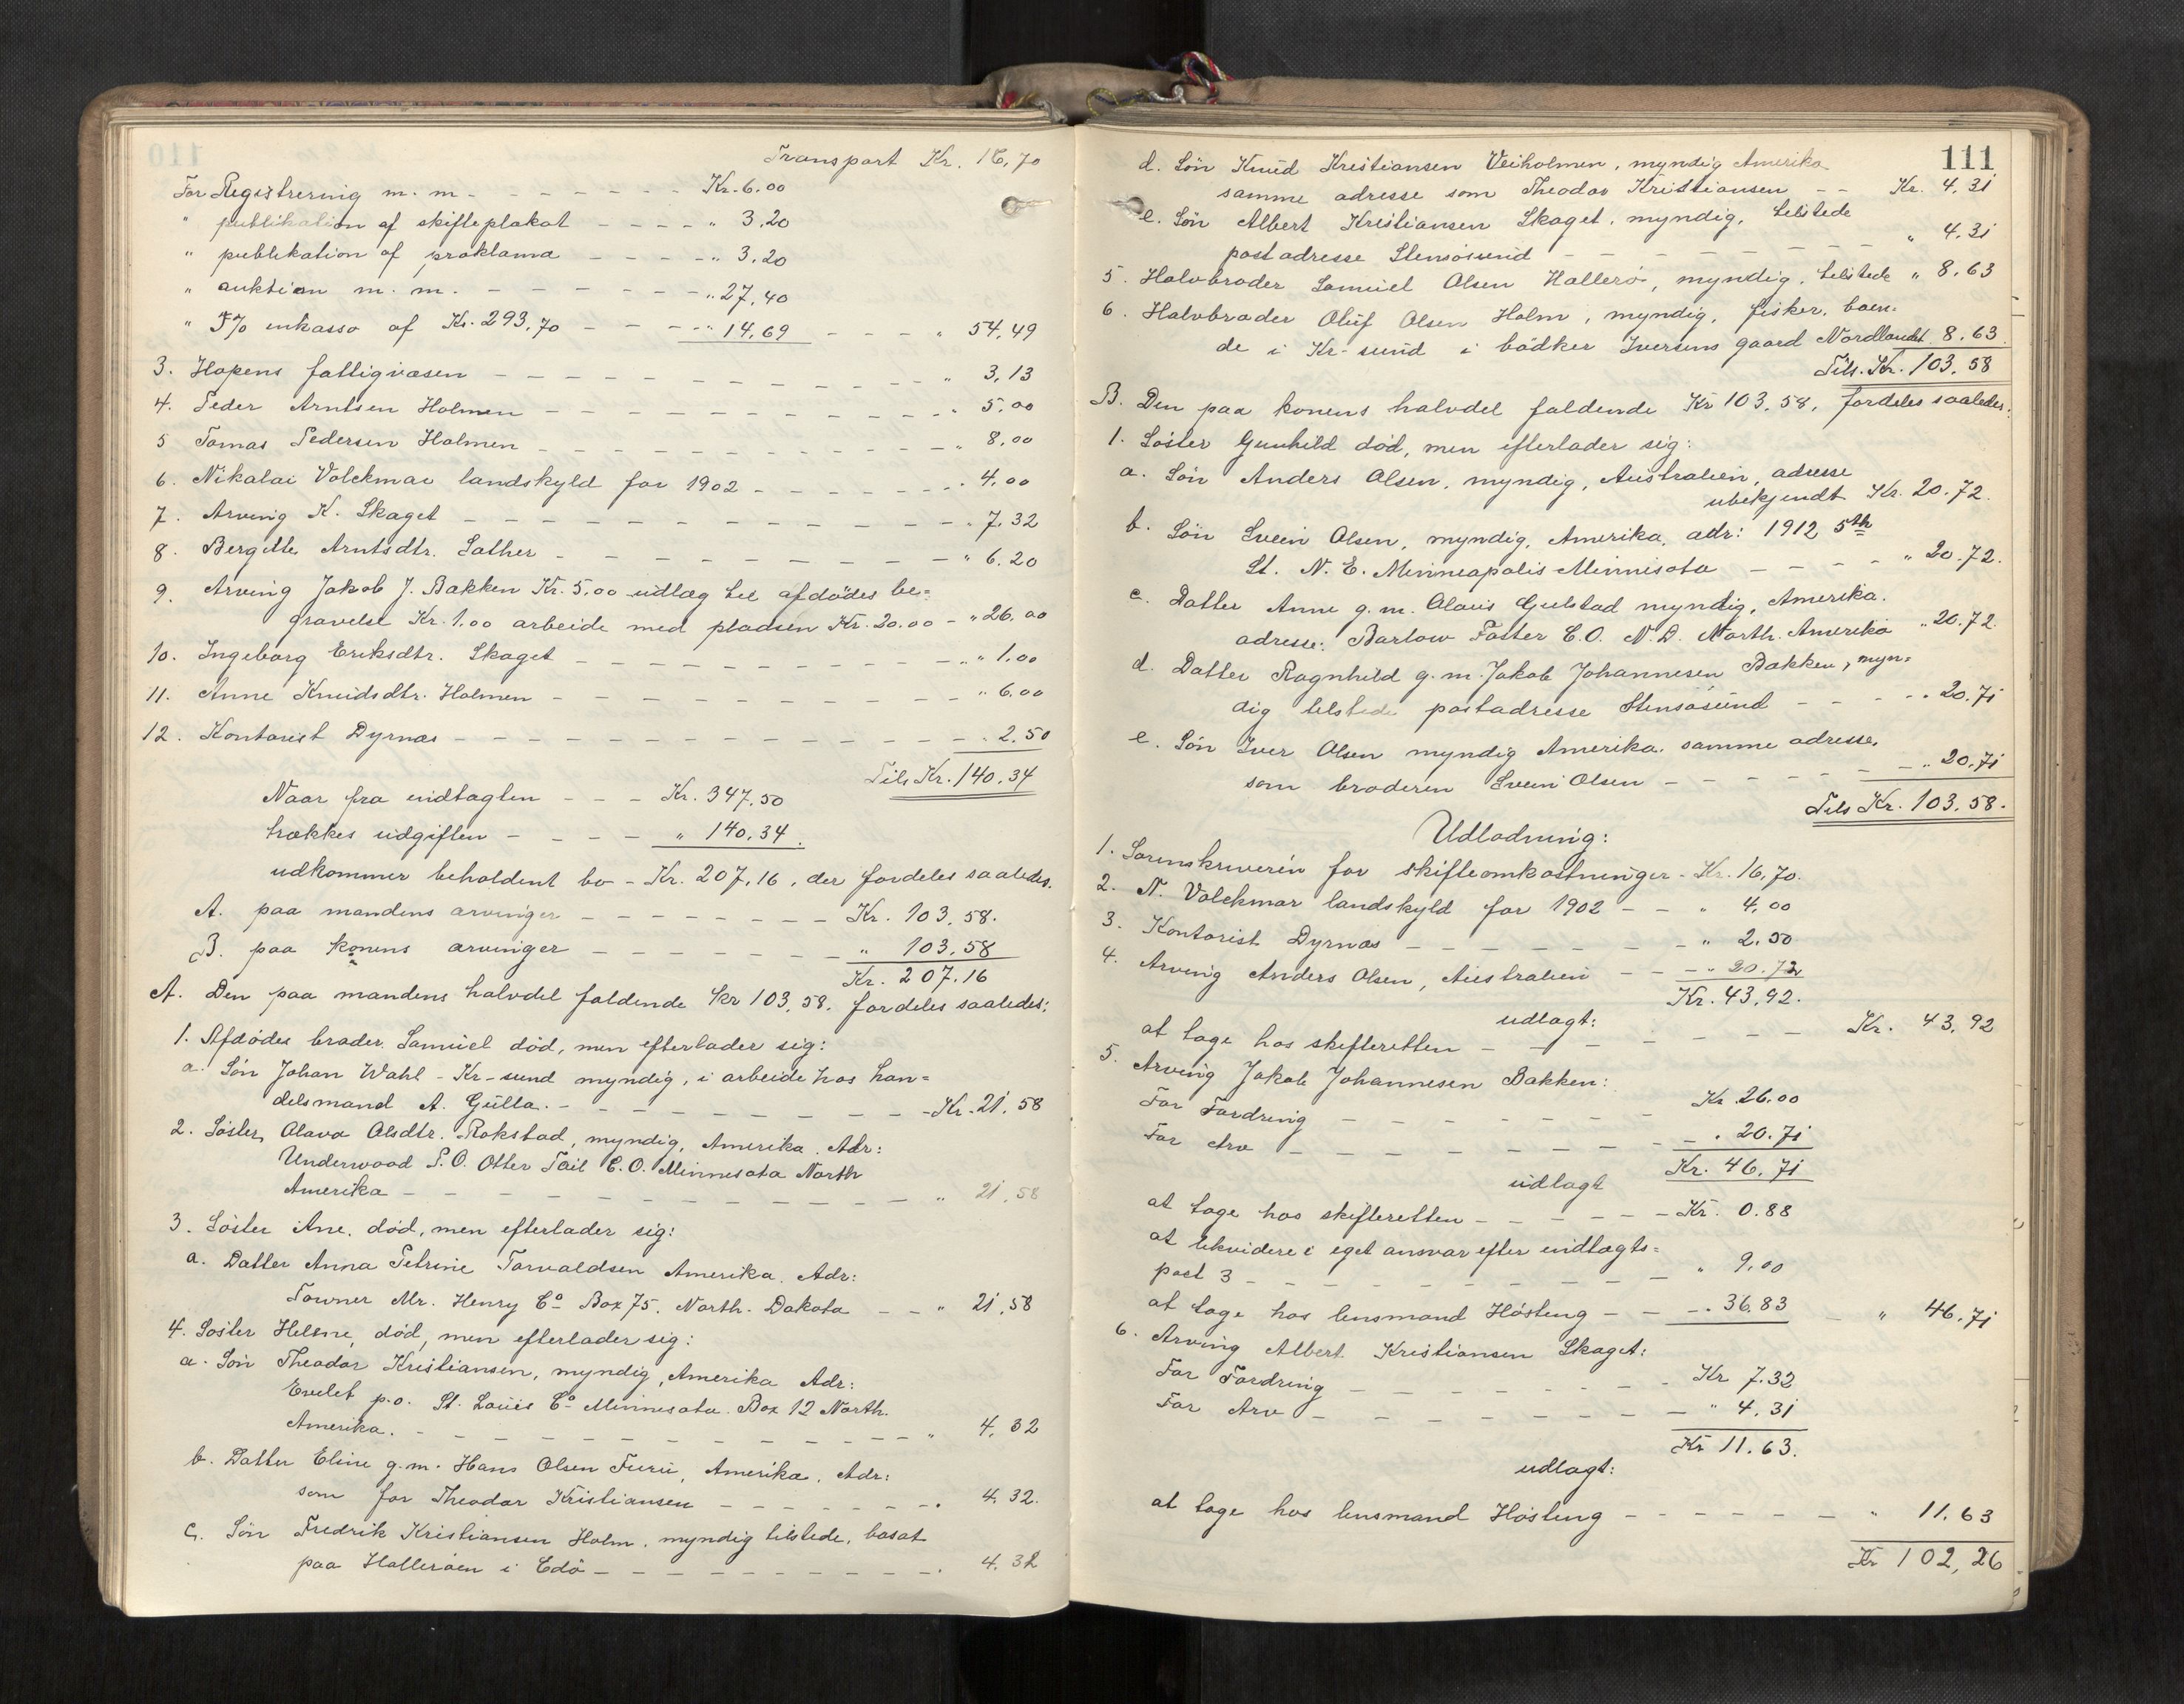 Transport Kr. 16,70
For Registrering m. m. - - - - - - Kr. 6.00
" publikation af skifteplakat - - - - " 3,20
" publikation af proklama - - - - " 3,20
" auktion m. m. - - - - - - " 27,40
" 5% inkasso af Kr. 293,70 - - - " 14,69 - - - " 54,49
3. Hopens fattigvæsen - - - - - - - - - " 3,13
4. Peder Arntsen Holmen - - - - - - - - - " 5,00
5 Tomas Pedersen Holmen - - - - - - - - - " 8,00
6. Nikalai Volckmar landskyld for 1902 - - - - - " 4,00
7. Arving K. Skaget - - - - - - - - - - " 7,32
8. Bergitte Arntsdtr. Sather - - - - - - - - " 6.20
9. Arving Jakob J. Bakken Kr. 5.00 udlæg til afdödes be=
gravelse Kr. 1.00 arbeide med pladsen Kr. 20.00 - " 26,00
10. Ingeborg Eriksdtr. Skaget - - - - - - - - " 1.00
11. Anne Knudsdtr. Holmen - - - - - - - - " 6.00
12. Kontorist Dyrnæs - - - - - - - - - - " 2.50
Tils Kr. 140.34
Naar fra indtægten - - - Kr. 347,50
trækkes udgiften - - - - " 140,34.
udkommer beholdent bo - Kr. 207,16, der fordeles saaledes.
A. paa mandens arvinger - - - - - - - Kr. 103,58.
B. paa konens arvinger - - - - - - - " 103,58
Kr. 207.16
A. Den paa mandens halvdel faldende Kr 103,58. fordeles saaledes:
1. Afdödes broder Samuel död, men efterlader sig:
a. Sön Johan Wahl - Kr-sund myndig, i arbeide hos han=
delsmand A. Gulla. - - - - - - - - Kr. 21,58
2. Söster Olava Olsdtr. Rokstad, myndig, Amerika. Adr:
Underwood P.O. Otter Tail C.O. Minnesota North
Amerika - - - - - - - - - - " 21,58
3. Söster Ane, död, men efterlader sig:
a. Datter Anna Petrine Torvaldsen Amerika. Adr:
Towner Mr. Henry Co Box 75. North. Dakota - - " 21,58
4. Söster Helene, död, men efterlader sig:
a. Sön Theodor Kristiansen, myndig, Amerika Adr:
Evelet p.o. St. Louis Co Minnesota. Box 12 North.
Amerika. - - - - - - - - - - - " 4,32
b. Datter Eline g.m. Hans Olsen Furu, Amerika. Adr:
som for Theodor Kristiansen - - - - - - - " 4,32.
c. Sön Fredrik Kristiansen Holm. myndig tilstede, bosat
paa Halleröen i Edö - - - - - - - - - " 4,32
111
d. Sön Knud Kristiansen Veiholmen, myndig Amerika
samme adresse som Theodor Kristiansen - - Kr. 4,31
e. Sön Albert Kristiansen Skaget, myndig, tilstede
postadresse Stensösund - - - - - - - " 4,31
5. Halvbroder Samuel Olsen Hallerö, myndig, tilstede " 8,63
6. Halvbroder Oluf Olsen Holm, myndig, fisker, boen=
de i Kr-sund i bödker Iversens gaard Nordlandet 8,63.
Tils. Kr. 103.58
B. Den paa konens halvdel faldende Kr 103,58, fordeles saaledes:
1. Söster Gunhild död, men efterlader sig:
a. Sön Anders Olsen, myndig, Australien, adresse
ubekjendt Kr. 20.72.
b. Sön Svein Olsen, myndig, Amerika, adr: 1912 5th
St. N. E. Minneapolis Minnisota - - - - " 20.72.
c. Datter Anne g.m. Olaus Gulstad myndig, Amerika.
adresse: Barlow Foster C.O. N.D. North. Amerika " 20.72.
d. Datter Ragnhild g.m. Jakob Johannesen Bakken, myn=
dig tilstede postadresse Stensösund - - - " 20,71
e. Sön Iver Olsen myndig Amerika, samme adresse,
som broderen Svein Olsen - - - - - - " 20,71
Tils Kr. 103,58.
Udlodning:
1. Sorenskriveren for skifteomkostninger - Kr. 16,70.
2. N. Volckmar landskyld for 1902 - - " 4,00
3. Kontorist Dyrnæs - - - - - - - " 2.50
4. Arving Anders Olsen, Australien - - - " 20.72
Kr. 43,92.
udlagt:
at tage hos skifteretten - - - - - - - Kr. 43,92
5. Arving Jakob Johannesen Bakken:
For Fordring - - - - - - Kr 26.00
For Arv - - - - - - - - " 20.71
Kr. 46,71
udlagt
at tage hos skifteretten - - - - - Kr. 0.88
at likvidere i eget ansvar efter indtægts=
post 3 - - - - - - - - - " 9,00
at tage hos lensmand Hösteng - - - " 36,83 - " 46,71
6. Arving Albert Kristiansen Skaget:
For Fordring - - - - - - - Kr 7.32
For Arv - - - - - - - - " 4,31
Kr 11.63.
udlagt:
at tage hos lensmand Hösteng - - - - - - " 11,63
Kr 102,26